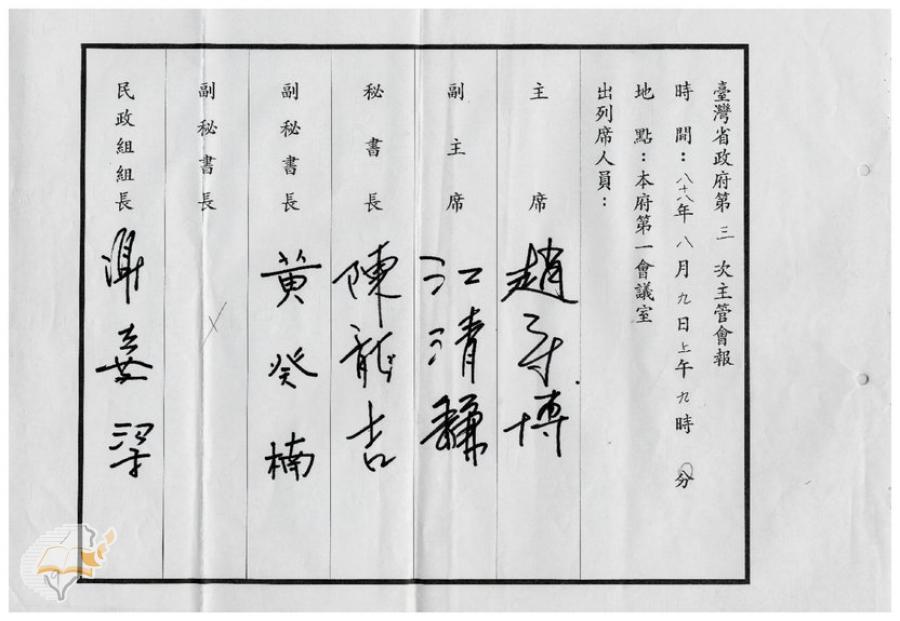 臺灣省政府第三次主管會報
時間：八十八年八月九日上午九時0分
地點：本府第一會議室
出列席人員：
主席 趙守博
副主席 江清馦
秘書長 陳龍吉
副秘書長 黃癸楠
副秘書長
民政組組長